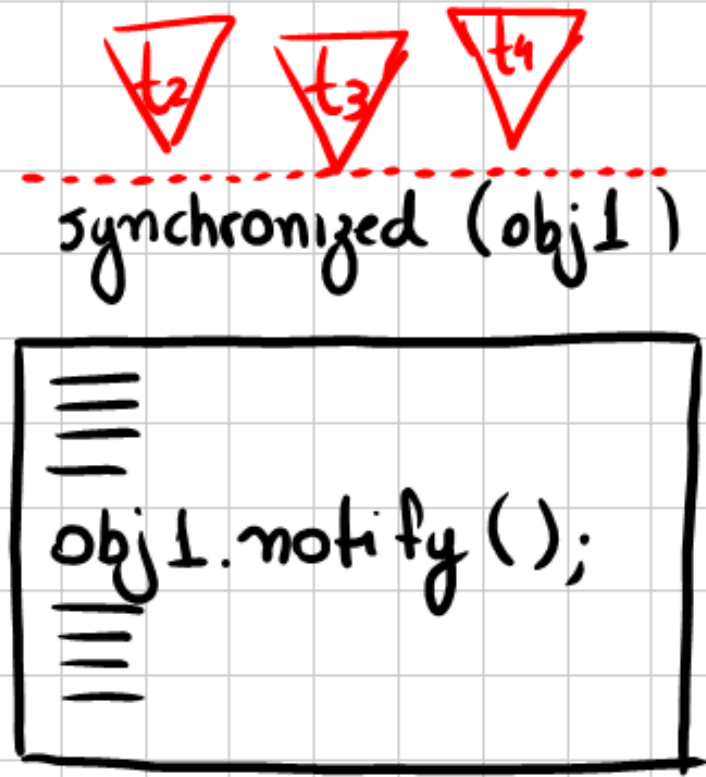 t2 t3 t4
synchronized (obj1)
obj1.notify();